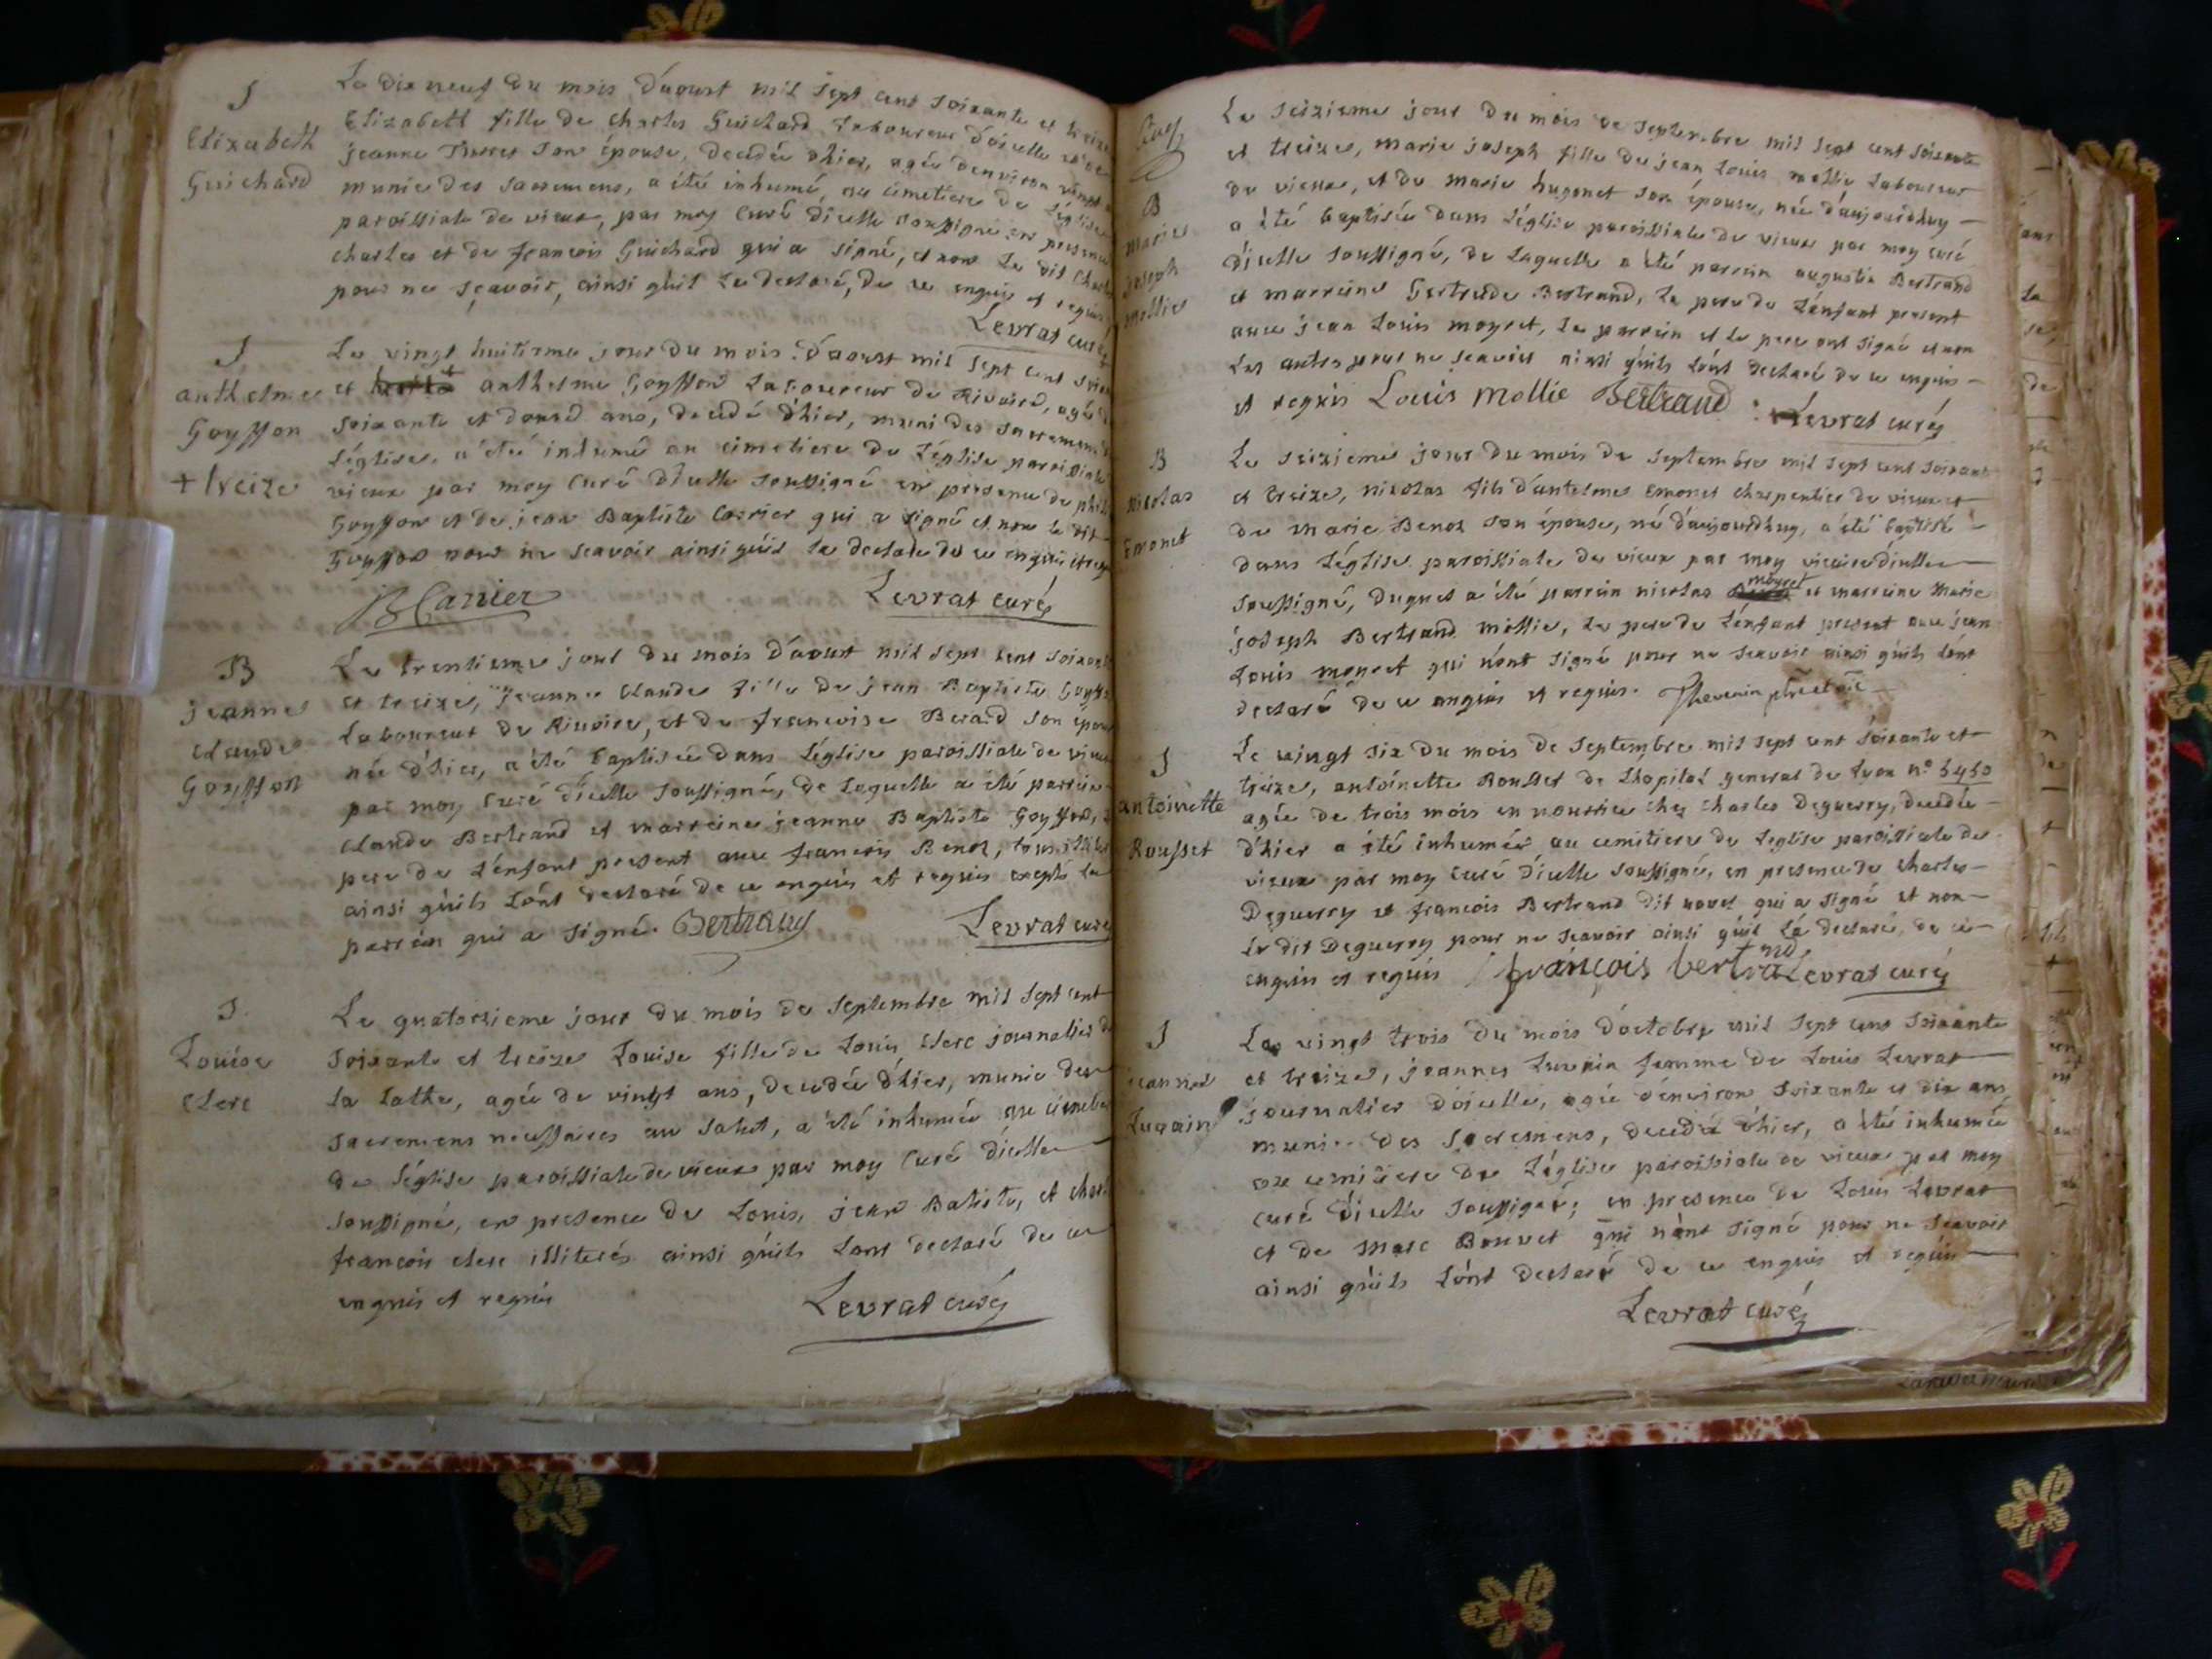 S
Elizabeth
Guichard
Le dix neuf du mois d'aoust mil sept cent soixante et treize
Elizabett fille de charles Guichard Laboureur d'oiselle et de
jeanne son épouse, decedée d'hier, agée denviron vingt
munie des sacremens, a été inhumé au cimetiere de L'église
paroissiale de vieux, par moy Curé d'icelle soussigné en presence
charles et de françois Guichard qui a signé, et non Le dit Charle
pour ne sçavoir, ainsi qu'il La declaré, de ce enquis et requis
Levrat curé
S
anthelme
Goyffon
+ treize
Le vingt huitieme jour du mois d'aoust mil sept cent soixan
et + anthelme Goyffon Laboureur de Rivoire, agé de
soixante et douze ans, decedé d'hier, muni des sacremens de
L'église, a été inhumé au cimetiere de L'église paroissiale
vieux par moy Curé d'icelle soussigné en presence de phili
Goyffon et de jean Baptiste Carrier qui a signé et non le dit
Goyffon pour ne sçavoir ainsi qu'il La declaré de ce enquis et req
JB Carrier
Levrat curé
B
jeanne
claude
Goyffon
Le trentieme jour du mois d'aoust mil sept cent soixante
et treize, jeanne Claude fille de jean Baptiste Goyffon
Laboureur de Rivoire, et de francoise Berard son épouse
née d'hier, a été baptisée dans L'église paroissiale de vieux
par moy Curé d'icelle soussigné, de Laquelle a été parrein
Claude Bertrand et marreine jeanne Baptiste Goyffon, le
pere de L'enfant present avec francois Benoz, tous
ainsi qu'ils L'ont declaré de ce enquis et requis excepté le
parrein qui a signé. Bertrand
Levrat curé
S.
Louise
Clerc
Le quatorzieme jour du mois de septembre mil sept cent
soixante et treize Louise fille de Louis Clerc journalier de
La Latte, agée de vingt ans, decedée d'hier, munie des
sacremens necessaires au salut, a été inhumée au cimetiere
de L'église paroissiale de vieux par moy Curé d'icelle
soussigné, en presence de Louis, jean Batiste, et
françois clerc illiterés ainsi qu'ils Lont declaré de ce
enquis et requis
Levrat curé
B
marie
joseph
mollie
Le seizieme jour du mois de septembre mil sept cent soixante
et treize, marie joseph fille de jean Louis mollie Laboureur
de vieux, et de marie hugonet son épouse, née d'aujourdhuy
a été baptisée dans L'église paroissiale de vieux par moy curé
d'icelle soussigné, de Laquelle a été parrein augustin Bertrand
et marreine Gertrude Bertrand, Le pere de L'enfant present
avec jean Louis moyret, Le parrein et Le pere ont signé et non
Les autres pour ne sçavoir ainsi qu'ils L'ont declaré de ce enquis
et requis Louis Mollie Bertrand Levrat curé
B
nicolas
Emonet
Le seizieme jour du mois de septembre mil sept cent soixante
et treize, nicolas fils d'antelme Emonet charpentier de vieux et
de marie Benoz son épouse, né d'aujourdhuy, a été baptisé
dans L'église paroissiale de vieux par moy vicaire d'icelle
soussigné, duquel a été parrein nicolas moyret et marreine Marie
joseph Bertrand mollie, Le pere de L'enfant present avec jean
Louis moyret qui n'ont signé pour ne sçavoir ainsi qu'ils L'ont
declaré de ce enquis et requis. Thevenin
S
antoinette
Rousset
Le vingt six du mois de septembre mil sept cent soixante et
treize, antoinette Rousset de L'hopital general de Lyon n°. 5450
agée de trois mois en nourrice chez charles Deguerry, decedée
d'hier a été inhumée au cemitiere de L'eglise paroissiale de
vieux par moy curé d'icelle soussigné, en presence de charles
Deguerry et francois Bertrand dit qui a signé et non
Le dit Deguerry pour ne sçavoir ainsi qu'il La declaré, de ce
enquis et requis françois bertrand Levrat curé
S
jeanne
Lugain
Le vingt trois du mois d'octobre mil sept cent soixante
et treize, jeanne femme de Louis Levrat
journalier d'oiselle, agée d'environ soixante et dix ans
munie des sacremens, decedée d'hier, a été inhumée
au cemitiere de L'église paroissiale de vieux par moy
curé d'icelle soussigné, en presence de Louis Levrat
et de Marc Bonvet qui n'ont signé pour ne sçavoir
ainsi qu'ils L'ont declaré de ce enquis et requis
Levrat curé